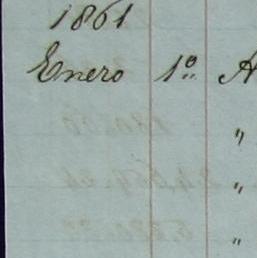 1861
Enero 1º A
"
"
"